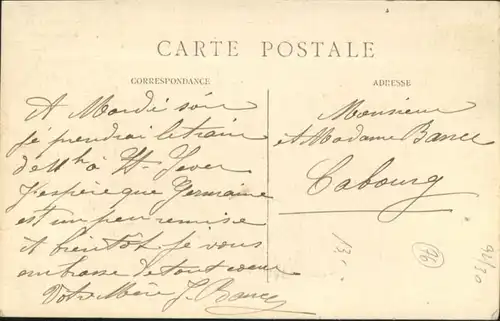 CARTE POSTALE
CORRESPONDANCE
A Mardi soir
je prendrai le train
de 11h à St-Sever
J'espère que Germaine
est un peu remise
A bientôt je vous
embrasse de tout cœur
Votre Mère J. Bance
ADRESSE
Monsieur
et Madame Bance
Cabourg
13.
96
92/30